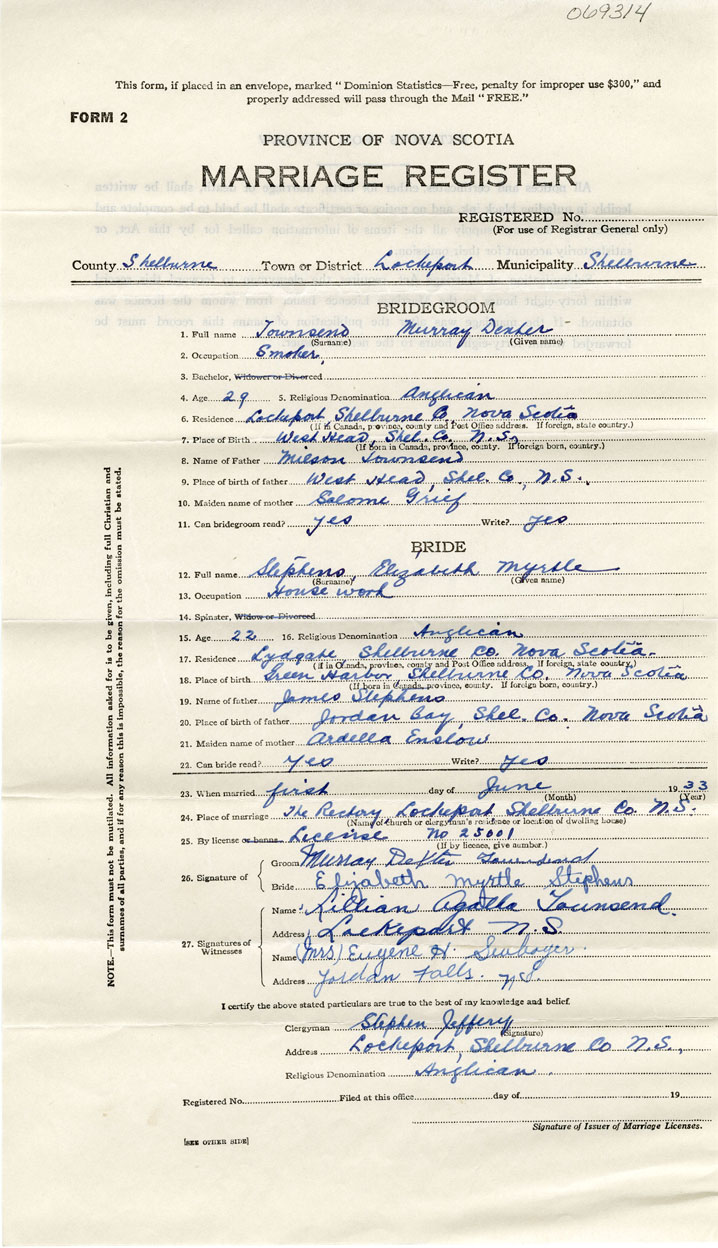 069314
This form, if placed in an envelope, marked "Dominion Statistics—Free, penalty for improper use $300," and
properly addressed will pass through the Mail "FREE."
FORM 2
PROVINCE OF NOVA SCOTIA
MARRIAGE REGISTER
REGISTERED No.
(For use of Registrar General only)
County Shelburne Town or District Lockeport Municipality Shelburne
BRIDEGROOM
1. Full name Townsend Murray Dexter
(Surname) (Given name)
2. Occupation Smoker
3. Bachelor, Widower or Divorced
4. Age 29 5. Religious Denomination Anglican
6. Residence Lockeport, Shelburne Co, Nova Scotia
(If in Canada, province, county and Post Office address. If foreign, state country.)
7. Place of Birth West Head, Shel. Co. N.S.
(If born in Canada, province, county. If foreign born, country.)
8. Name of Father Milson Townsend
9. Place of birth of father West Head, Shel. Co, N.S.
10. Maiden name of mother Salome Grief
11. Can bridegroom read? yes Write? yes
BRIDE
12. Full name Stephens, Elizabeth Myrtle
(Surname) (Given name)
13. Occupation House work
14. Spinster, Widow or Divorced
15. Age 22 16. Religious Denomination Anglican
17. Residence Lydgate, Shelburne Co. Nova Scotia.
(If in Canada, province, county and Post Office address. If foreign, state country.)
18. Place of birth Green Harbor, Shelburne Co. Nova Scotia
(If born in Canada, province, county. If foreign born, country.)
19. Name of father James Stephens
20. Place of birth of father Jordan Bay, Shel. Co. Nova Scotia
21. Maiden name of mother Ardella Enslow
22. Can bride read? yes Write? yes
23. When married first day of June 1933
(Month) (Year)
24. Place of marriage The Rectory Lockeport Shelburne Co. N.S.
(Name of church or clergyman's residence or location of dwelling house)
25. By license or banns License No 25001
(If by licence, give number.)
26. Signature of
Groom Murray Townsend
Bride Elizabeth Myrtle Stephens
27. Signatures of Witnesses
Name Lillian Agatha Townsend.
Address Lockeport N.S
Name (Mrs) Eugene H.
Address Jordan Falls. N.S.
I certify the above stated particulars are true to the best of my knowledge and belief.
Clergyman Stephen Jeffery
(Signature)
Address Lockeport, Shelburne Co N.S.,
Religious Denomination Anglican.
Registered No. Filed at this office day of 19
Signature of Issuer of Marriage Licenses.
[SEE OTHER SIDE]
NOTE.—This form must not be mutilated. All information asked for is to be given, including full Christian and
surnames of all parties, and if for any reason this is impossible, the reason for the omission must be stated.